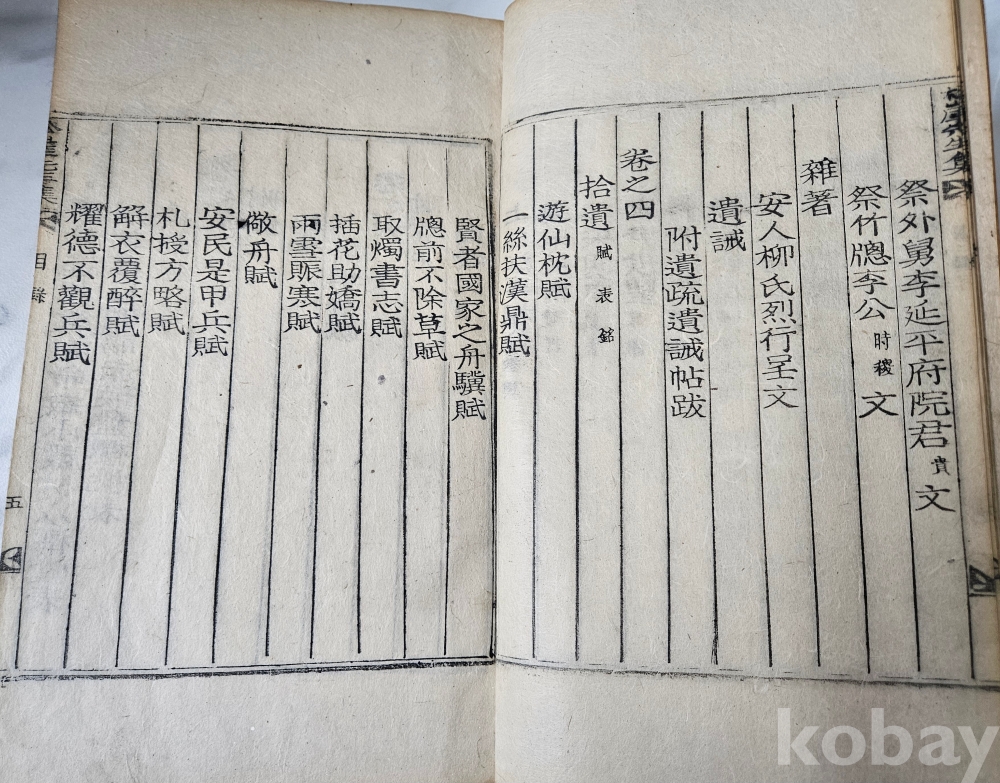 祭外舅李延平府院君貴文
祭竹牕李公時稷文
雜著
安人柳氏烈行呈文
遺誡
附遺疏遺誡帖跋
卷之四
拾遺 賦 表 銘
遊仙枕賦
一絲扶漢鼎賦
賢者國家之舟驥賦
牕前不除草賦
取燭書志賦
插花助嬌賦
雨雪賑寒賦
儆舟賦
安民是甲兵賦
札授方略賦
解衣覆醉賦
耀德不觀兵賦
目錄
五
kobay